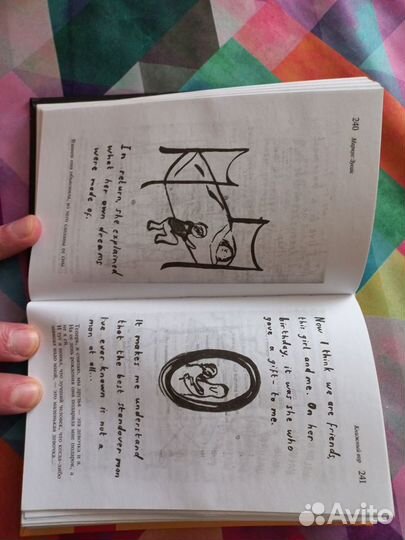 240 Маркус Зусак
In return, she explained
what her own dreams
were made of.
Взамен она объяснила, из чего сделаны ее сны.
Книжный вор 241
Now I think we are friends,
this girl and me. On her
birthday, it was she who
gave a gift – to me.
It makes me understand
that the best standover man
I've ever known is not a
man at all...
Теперь, я считаю, мы друзья – эта девочка и я.
На ее день рождения она подарила мне подарок, а
не я ей.
И тут я понял, что лучший человек, что когда-либо
надо мной, — это маленькая девочка...
Avito